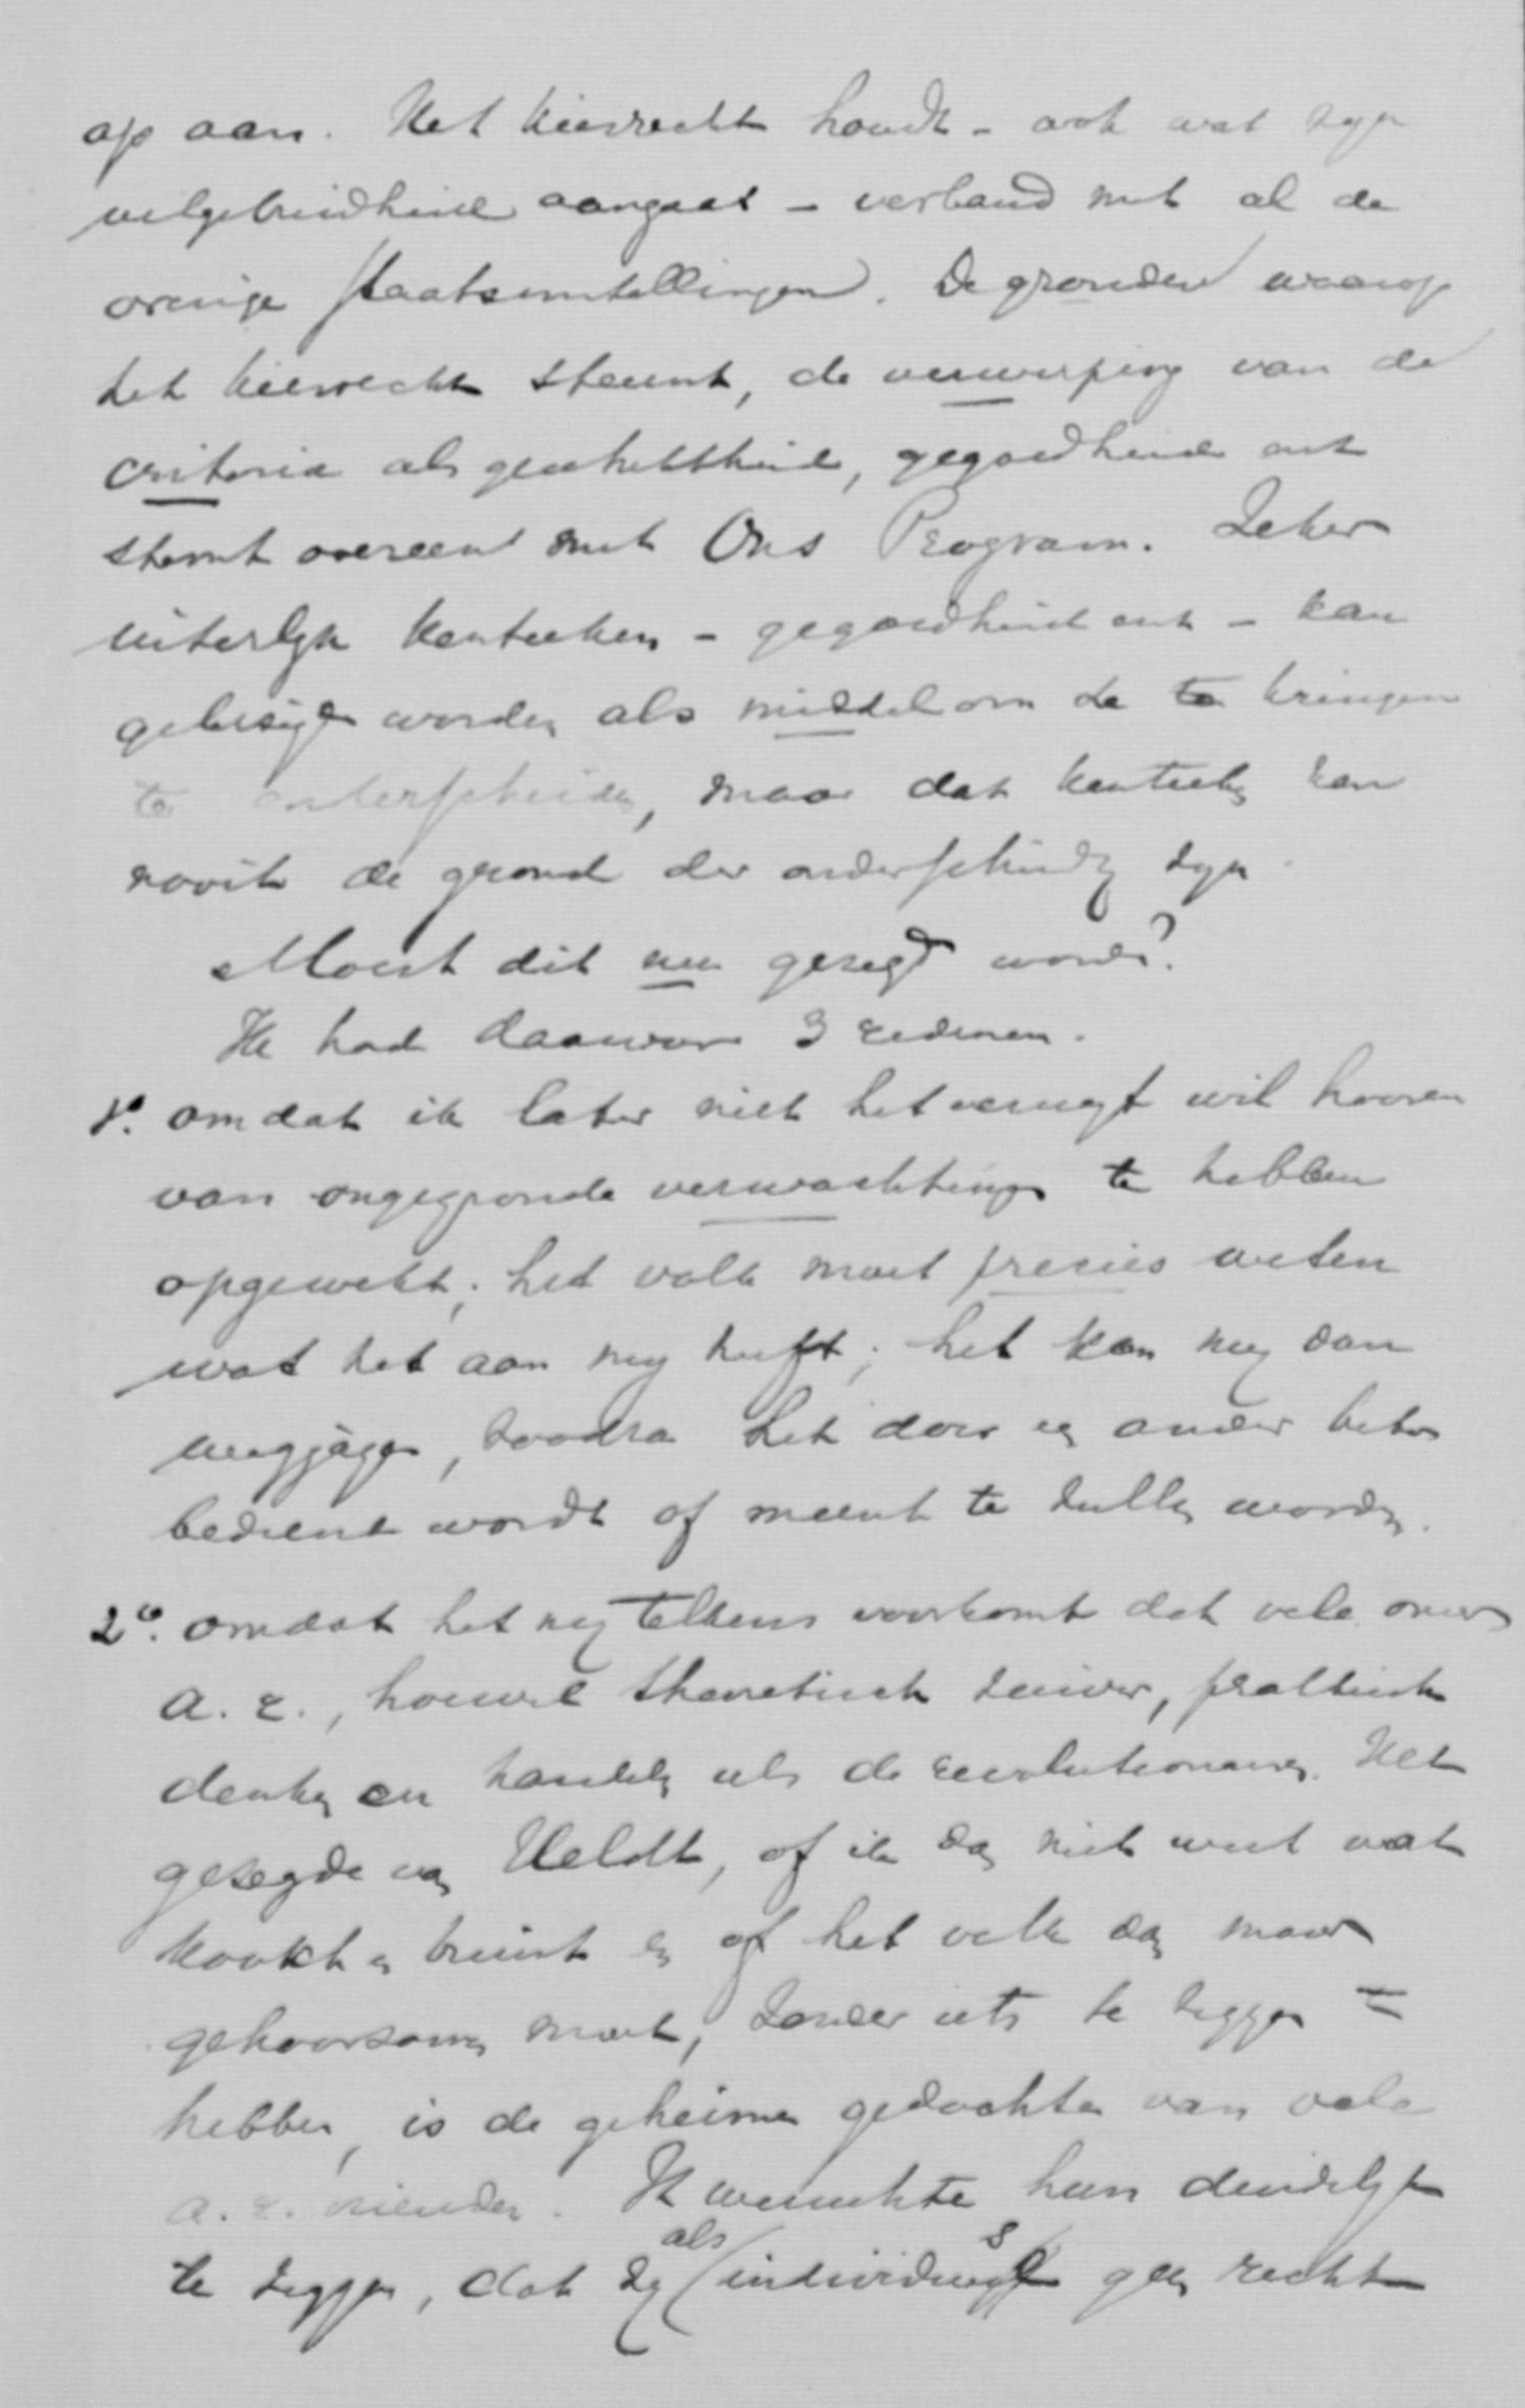 op aan. Het kiesrecht houdt - ook wat zyn
uitgebreidheid aangaat - verband met al de
overige staatsinstellingen. De gronden waarop
het kiesrecht steunt, de verwerping van de
criteria als geschiktheid, gegoedheid enz
stemt overeen met Ons Program. Zeker
uiterlyk kenteeken - gegoedheid enz - kan
gebezigd worden als middel om de kringen
te onderscheiden, maar dat kenteeken kan
nooit de grond der onderscheiding zyn.
Moest dit nu gezegd worden?
Ik had daarvoor 3 redenen.
1o. omdat ik later niet het verwyt wil hooren
van ongegronde verwachtingen te hebben
opgewekt; het volk moet precies weten
wat het aan my heeft; het kan my dan
wegjagen, zoodra het door een ander beter
bediend wordt of meent te zullen worden.
2o. omdat het my telkens voorkomt dat vele onzer
a.r., hoewel theoretisch zuiver, praktisch
denken en handelen als de revolutionairen. Het
gezegde van Heldt, of ik dan niet weet wat
kookt en bruist en of het volk dan maar
gehoorzamen moet, zonder iets te zeggen te
hebben, is de geheime gedachte van vele
a.r. vrienden. Ik wenschte hun duidelyk
te zeggen, dat zy als individu's geen recht